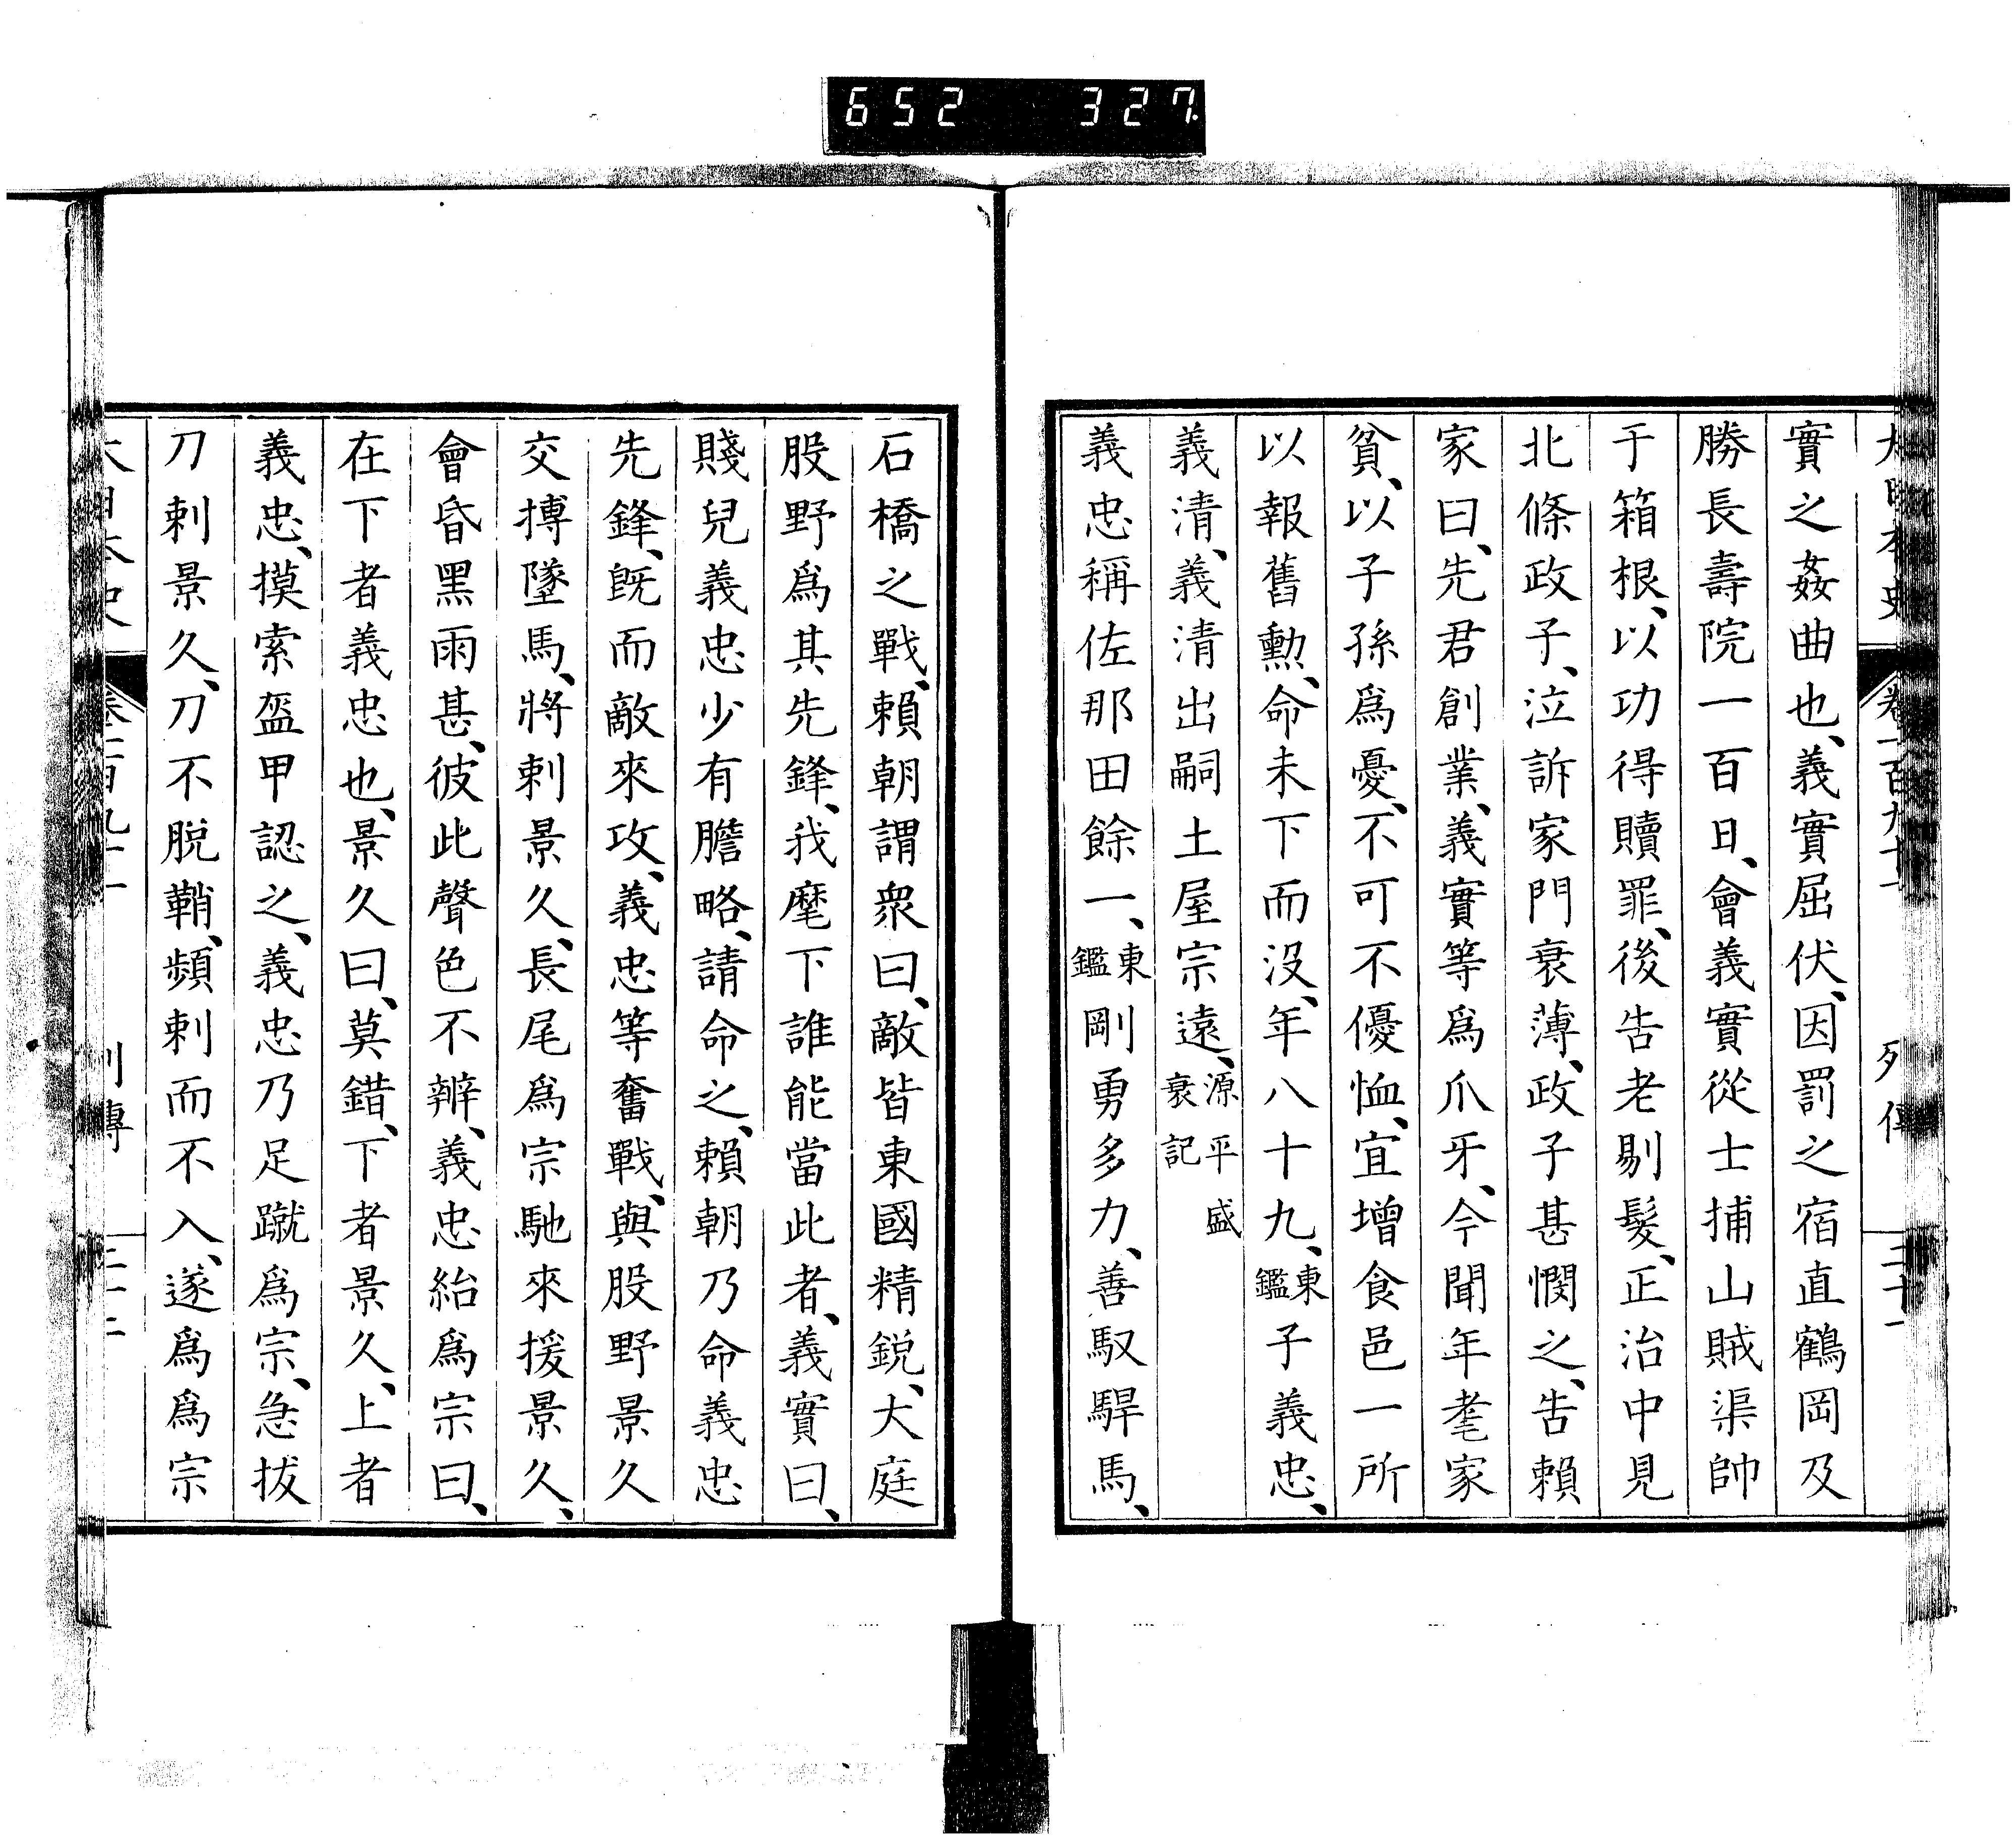 652 327
實之姦曲也、義實屈伏、因罰之宿直鶴岡及
勝長壽院一百日、會義實從士捕山賊渠帥
于箱根、以功得贖罪、後告老剔髮、正治中見
北條政子、泣訴家門衰薄、政子甚憫之、告賴
家曰、先君創業、義實等爲爪牙、今聞年耄家
貧、以子孫爲憂、不可不優恤、宜增食邑一所
以報舊勲、命未下而沒、年八十九、東鑑子義忠、
義清、義清出嗣土屋宗遠、源平盛衰記
義忠稱佐那田餘一、東鑑剛勇多力、善馭駻馬、
石橋之戰、賴朝謂衆曰、敵皆東國精銳、大庭
股野爲其先鋒、我麾下誰能當此者、義實曰、
賤兒義忠少有膽略、請命之、賴朝乃命義忠
先鋒、既而敵來攻、義忠等奮戰、與股野景久
交搏墜馬、將刺景久、長尾爲宗馳來援景久、
會昏黑雨甚、彼此聲色不辨、義忠紿爲宗曰、
在下者義忠也、景久曰、莫錯、下者景久、上者
義忠、摸索盔甲認之、義忠乃足蹴爲宗、急拔
刀刺景久、刀不脫鞘、頻刺而不入、遂爲爲宗